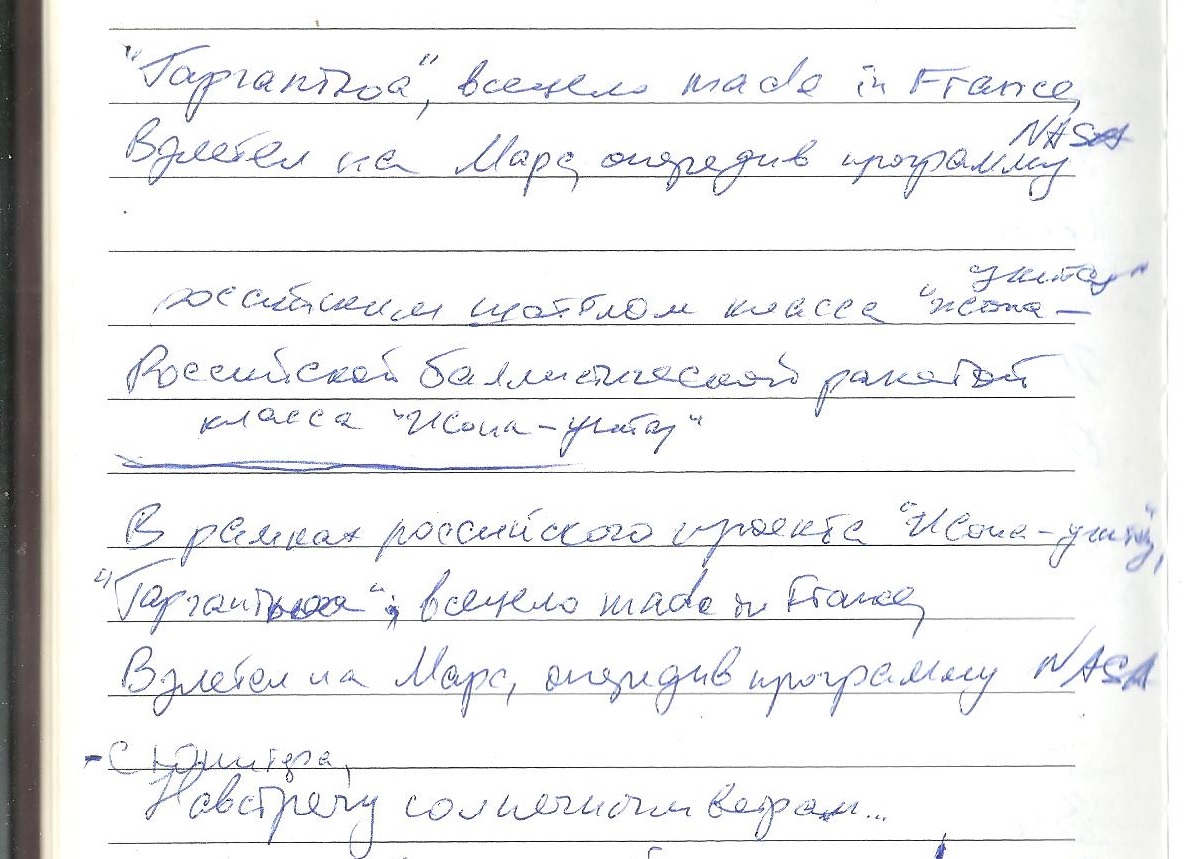 "Гаргантюа", всецело made in France,
Взлетел на Марс, опередив программу NASA
российским шаттлом класса "Жопа-
Российской баллистической ракетой
класса "Жопа-
В рамках российского проекта "Жопа-
"Гаргантюа", всецело made in France,
Взлетел на Марс, опередив программу NASA
- С Юпитера,
Навстречу солнечным ветрам...